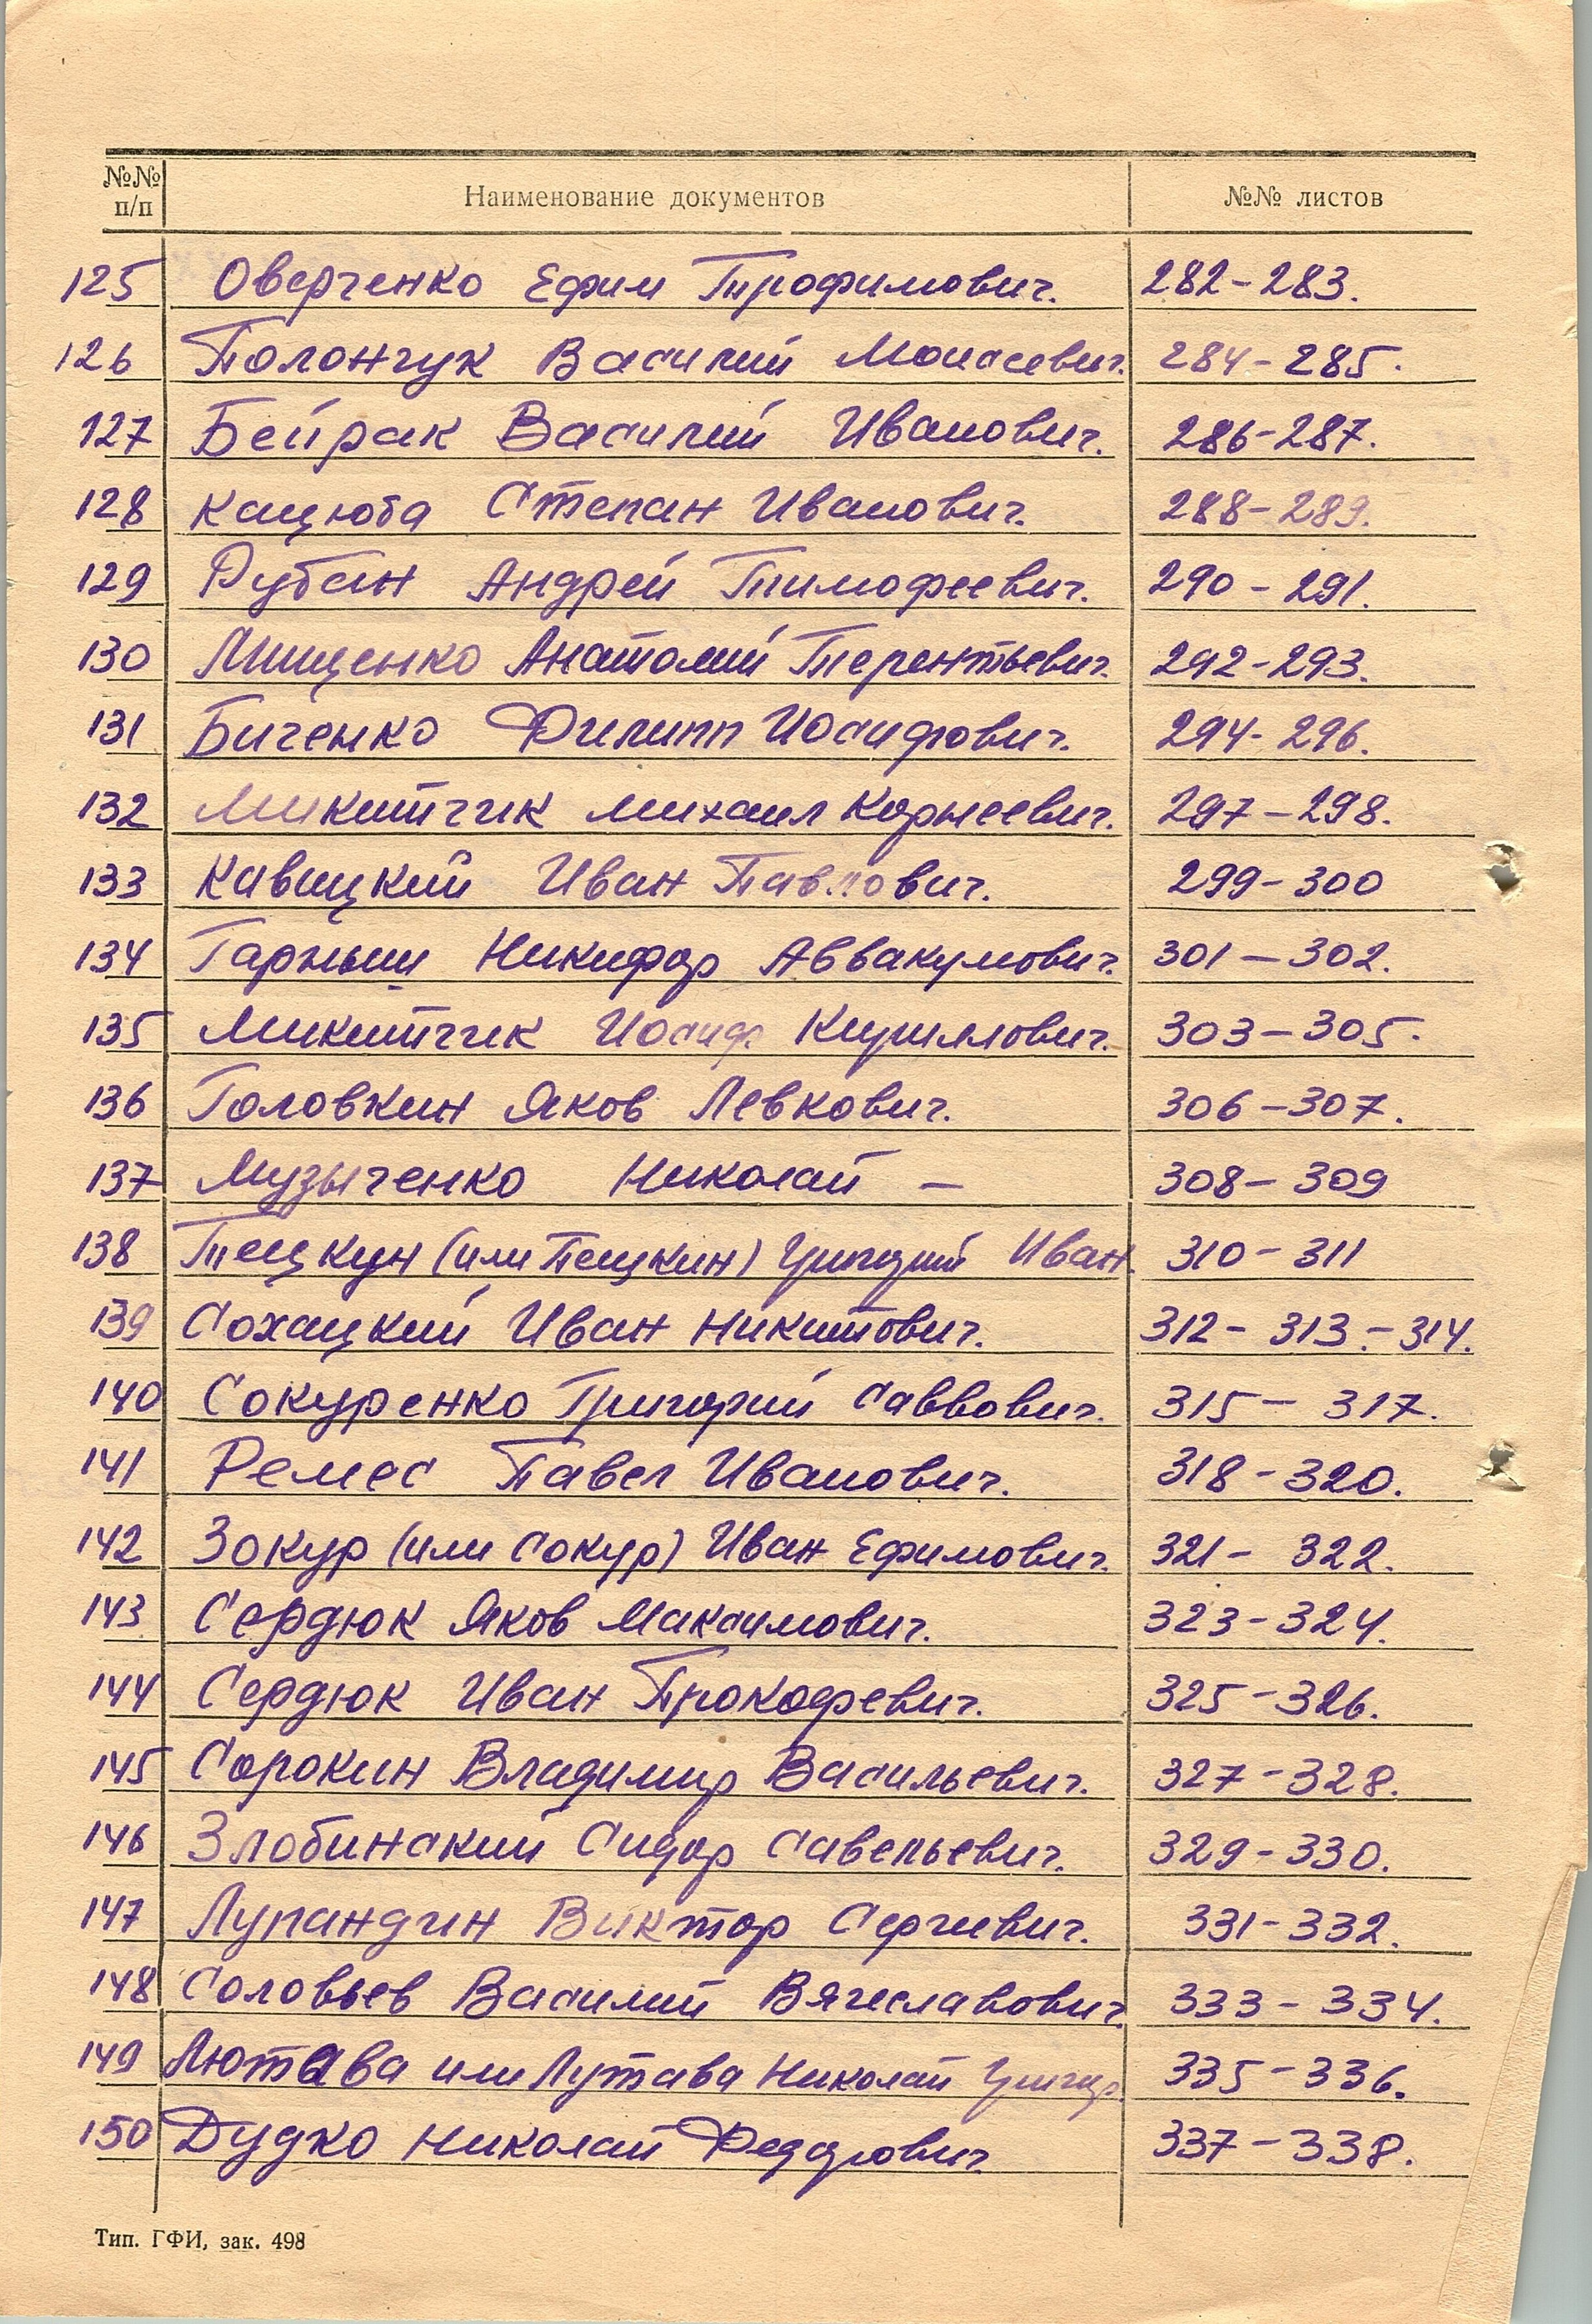 №№ п/п Наименование документов №№ листов
125 Оверченко Ефим Трофимович. 282-283.
126 Полончук Василий Моисеевич. 284-285.
127 Бейрак Василий Иванович. 286-287.
128 Кацюба Степан Иванович. 288-289.
129 Рубан Андрей Тимофеевич. 290-291.
130 Мищенко Анатолий Терентьевич. 292-293.
131 Биченко Филипп Иосифович. 294-296.
132 Микитчик Михаил Корнеевич. 297-298.
133 Кавицкий Иван Павлович. 299-300
134 Гарныш Никифор Аввакумович. 301-302.
135 Микитчик Иосиф Кириллович. 303-305.
136 Головкин Яков Левкович. 306-307.
137 Музыченко Николай — 308-309
138 Тецкун (или Пецкин) Григорий Иван. 310-311
139 Сохацкий Иван Никитович. 312-313.-314.
140 Сокуренко Григорий Саввович. 315-317.
141 Ремес Павел Иванович. 318-320.
142 Зокур (или Сокур) Иван Ефимович. 321-322.
143 Сердюк Яков Максимович. 323-324.
144 Сердюк Иван Прокофевич. 325-326.
145 Сорокин Владимир Васильевич. 327-328.
146 Злобинский Сидор Савельевич. 329-330.
147 Лупандин Виктор Сергеевич. 331-332.
148 Соловьев Василий Вячеславович. 333-334.
149 Лютава или Лутава Николай Григор. 335-336.
150 Дудко Николай Федорович. 337-338.
Тип. ГФИ, зак. 498